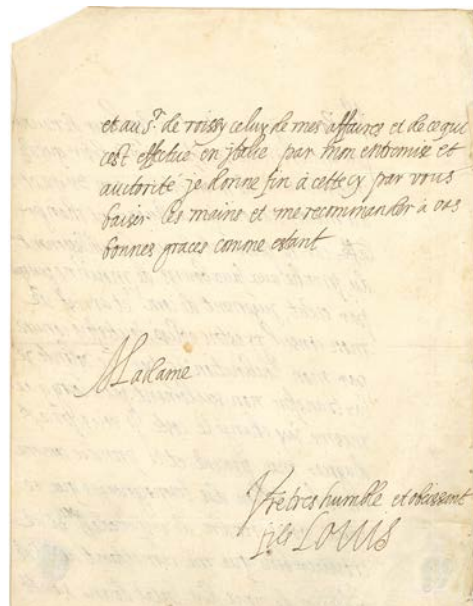 et au Sr. de roissy celuy de mes affaires et de ce qui
c'est effectué en Italie par mon entremise et
autorité je donne fin à cette cy par vous
baiser les mains et me recommander à vos
bonnes graces comme estant
Madame
Vre tres humble et obeissant
fils LOUIS